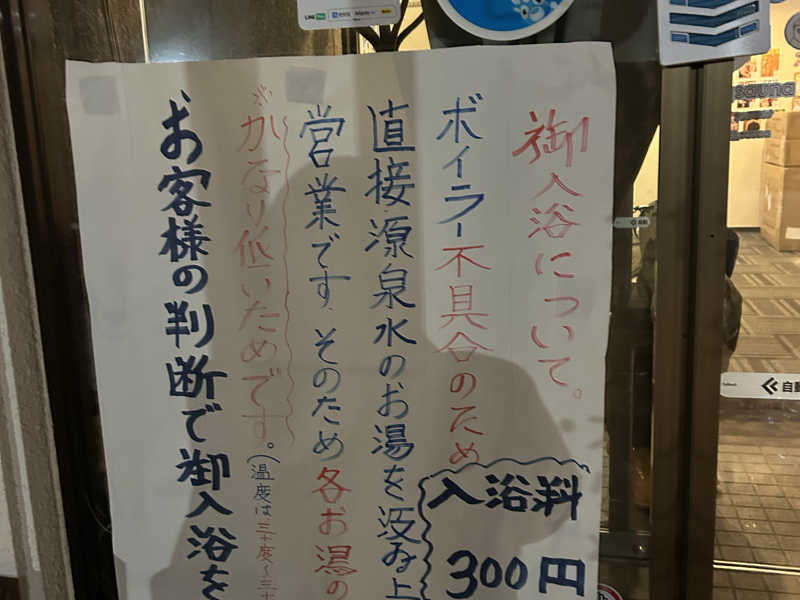 御入浴について。
ボイラー不具合のため
直接源泉水のお湯を汲み上
営業です。そのため各お湯の
※かなり低いためです。(温度は、三十度〜三十
お客様の判断で御入浴を
入浴料
300円
sauna
自動